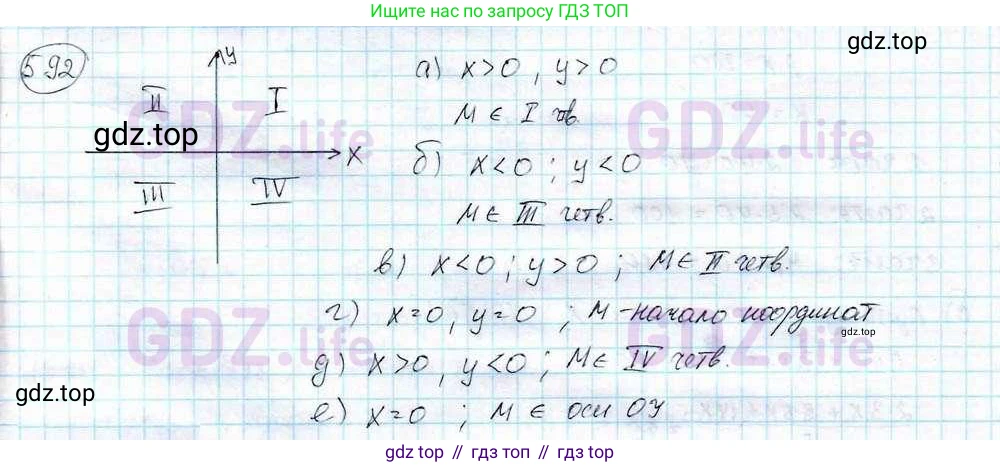 Ищите нас по запросу ГДЗ ТОП
592
y
а) x>0, y>0
II I
M ∈ I чтв.
gdz.top
GDZ.life GDZ.life
x
б) x<0; y<0
III IV
M ∈ III четв.
в) x<0; y>0; M ∈ II четв.
GDZ.life GDZ.life
г) x=0, y=0; M - начало координат
gdz.top
д) x>0, y<0; M ∈ IV четв.
gdz.top
е) x=0; M ∈ оси OY
gdz.top // гдз.топ // гдз.top